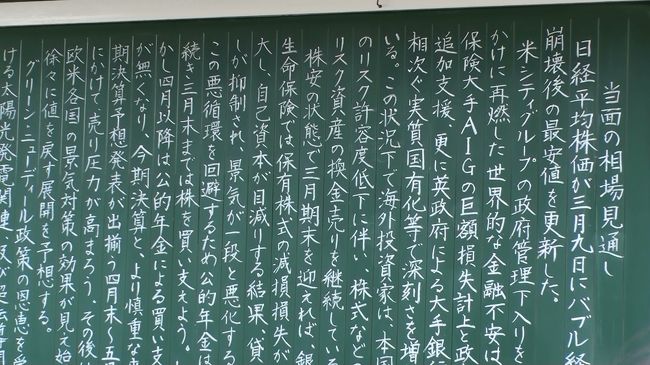 当面の相場見通し
日経平均株価が三月九日にバブル経
崩壊後の最安値を更新した。
米シティグループの政府管理下入りを
かけに再燃した世界的な金融不安は
保険大手AIGの巨額損失計上と政
追加支援、更に英政府による大手銀
相次ぐ実質国有化等で深刻さを増
いる。この状況下で海外投資家は、本国
のリスク許容度低下に伴い、株式などの
リスク資産の換金売りを継続している
株安の状態で三月期末を迎えれば、銀
生命保険では保有株式の減損損失が
大し、自己資本が目減りする結果、貸
しが抑制され、景気が一段と悪化する
この悪循環を回避するため公的年金は
続き三月末までは株を買い支えよう。
かし四月以降は公的年金による買い支
が無くなり、今期決算と、より慎重な
期決算予想発表が出揃う四月末〜五
にかけて売り圧力が高まろう。その後
欧米各国の景気対策の効果が見え始
徐々に値を戻す展開を予想する。
グリーン・ニューディール政策の恩恵を受
ける太陽光発電関連